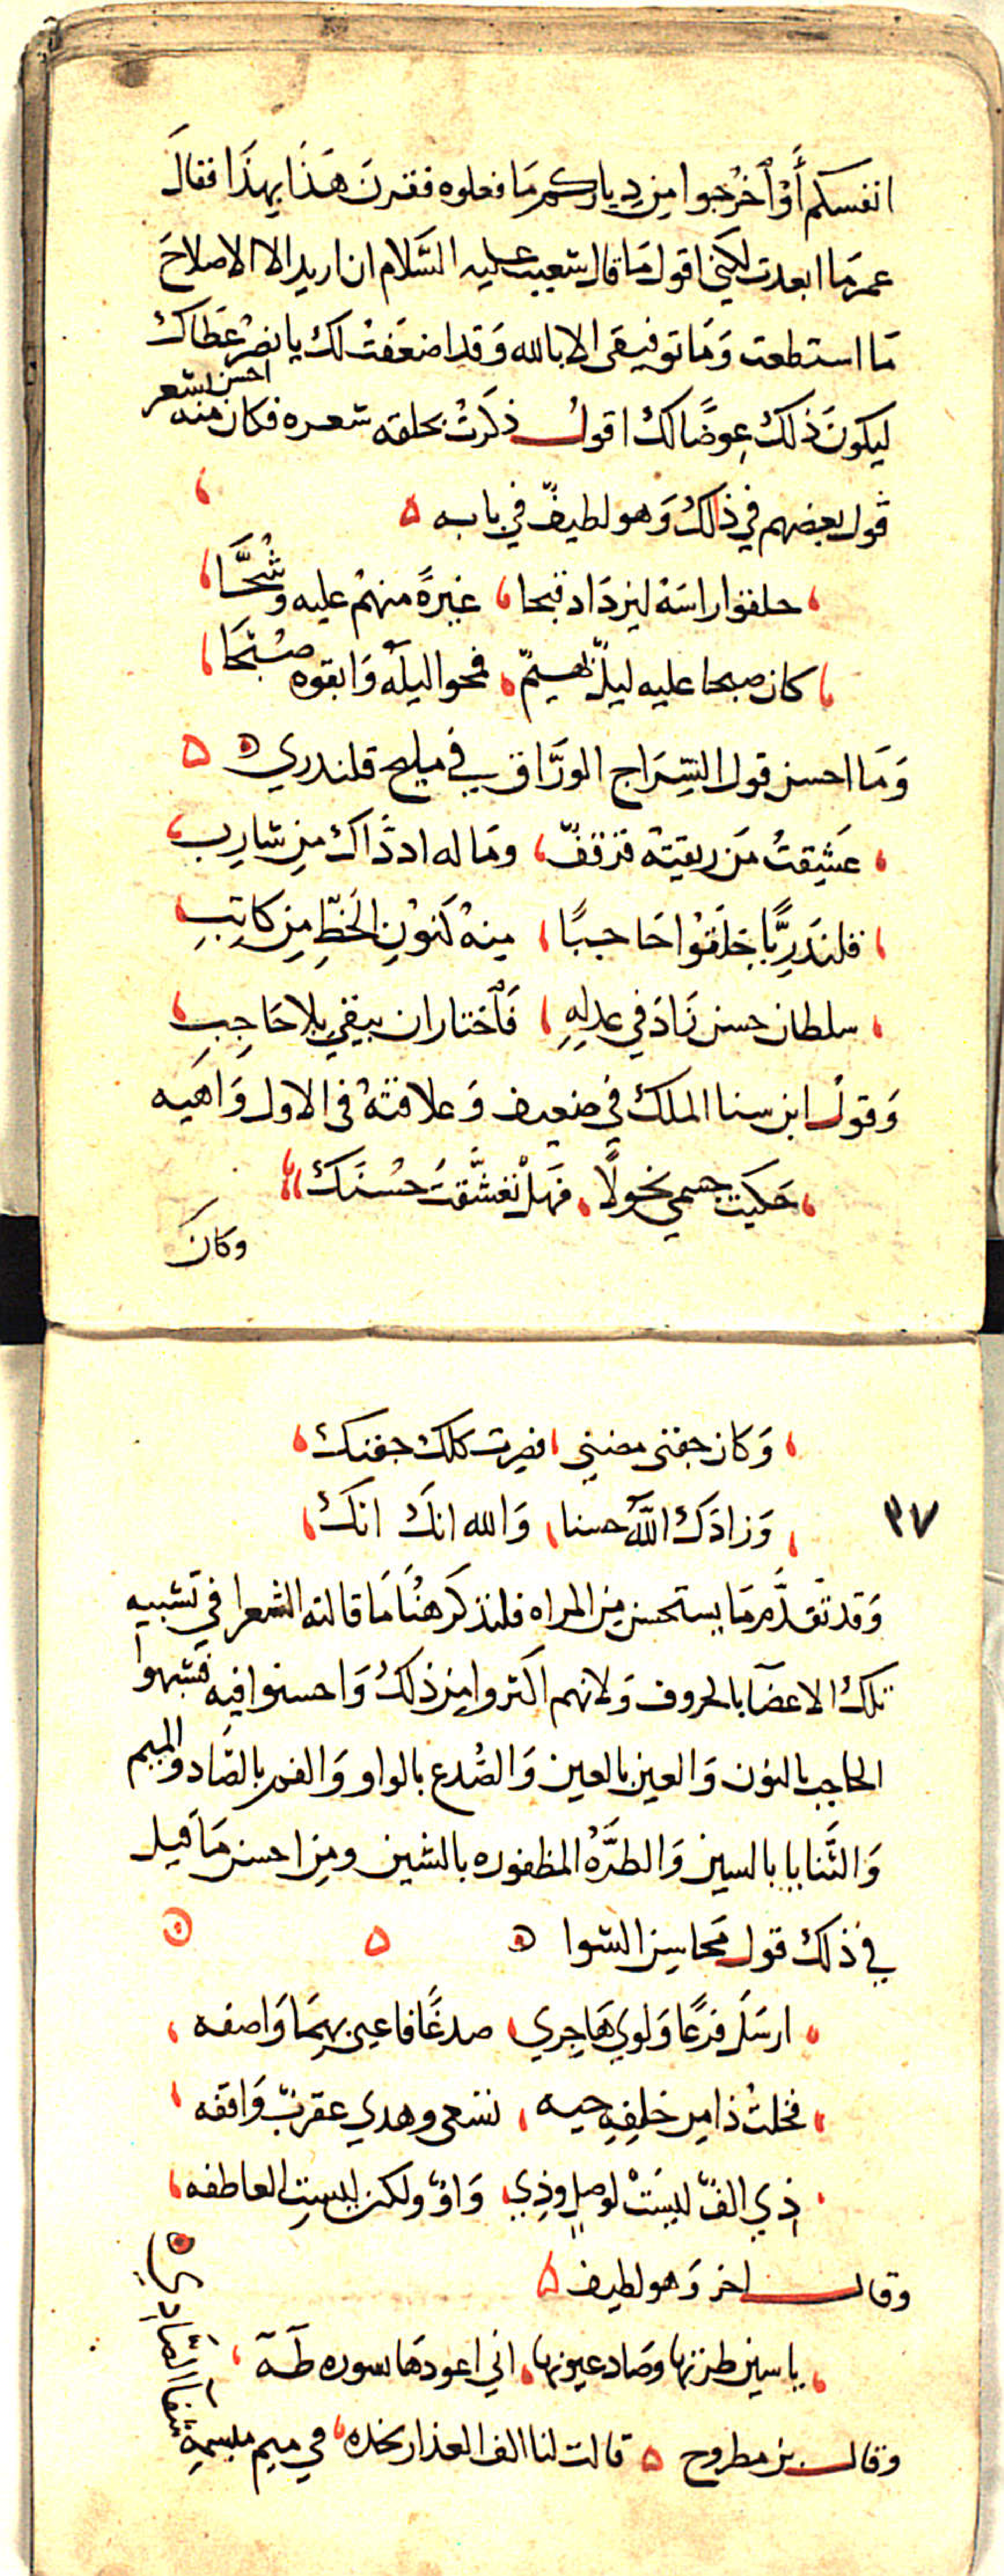 انفسكم أو ٱخرجوا من دياركم ما فعلوه فقرن هذا بهذا فقال
عمر ما ابعدت لكني اقول ما قال شعيب عليه السَّلام ان اريد الا الاصلاح
ما استطعت وَمَا توفيقى الا بالله وَقد اضعَفت لك يا نصر عَطاك
ليكونَ ذلك عِوضًا لك اقول ذكرتْ بحلقه شعره فكان منه احسن شعر
قول بعضهم في ذلك وَهو لطيفٌ في بابه
حلقوا راسَهُ ليزدَاد قبحا غيرةً منهمُ عليه وشُحَّا
كان صبحا عليه ليلٌ بهيمٌ فمحوا ليلَه وَابقوه صُبْحَا
وَمَا احسن قول السِّرَاج الورَّاق في مليح قلندري
عَشِقتُ مَن ريقتهُ قرقفٌ ومَا له اذ ذَّاك مِن شارِب
قلندَرِيًّا حَلَقوُا حَاجبًا مِنهُ كَنوُنِ الخَطِّ مِن كاتِبِ
سلطان حسن زَادَ في عدلِهِ فَٱختار ان يبقي بِلا حَاجِبِ
وَقول ابن سنا الملك في ضعيف وَعلاقتهُ فى الاول وَاهيه
حَكيت جسمي نحولًا فهَلْ تعَشَّقتَ حُسْنَكْ
وكانَ
وَكان جفنى مضنىِ فصِرت كلك جفنك
٣٧
وَزادَك اللّهَ حسنا وَالله انكَ انكْ
وَقد تقدَّم مَا يستحسن من المراه فلنذكر هنُا مَا قالته الشعرا في تشبيه
تلك الاعضا بالحروف وَلانهم اكثروا من ذلكُ وَاحسنوا فيه فشبهوا
الحاجب بالنون وَالعين بالعين وَالصُدغ بالواو وَالفم بالصَّاد والميم
وَالثَّنايا بالسين وَالطرَّهْ المظفوره بالشين ومِن احسن مَا قيل
في ذلك قول محاسِن الشوا
ارسَلَ فرعًا وَلوي هَاجِري صدغًا فاعيى بهمَا وَاصفه
فخلتُ ذا مِن خلفِهِ حيه تسَعى وهدي عقربٌ وَاقفه
ذي الفٌ ليسَتْ لوصلٍ وذِي وَاوٌ ولكن ليستِ العاطفه
وقال اخر وَهو لطيف
ياسين طرتها وصَاد عيونها اني اعودهَا بسوره طَهَ
وقال بن مطروح قالت لنا الف العذار بخده في ميم مبسمهِ شفآ الصَّادي